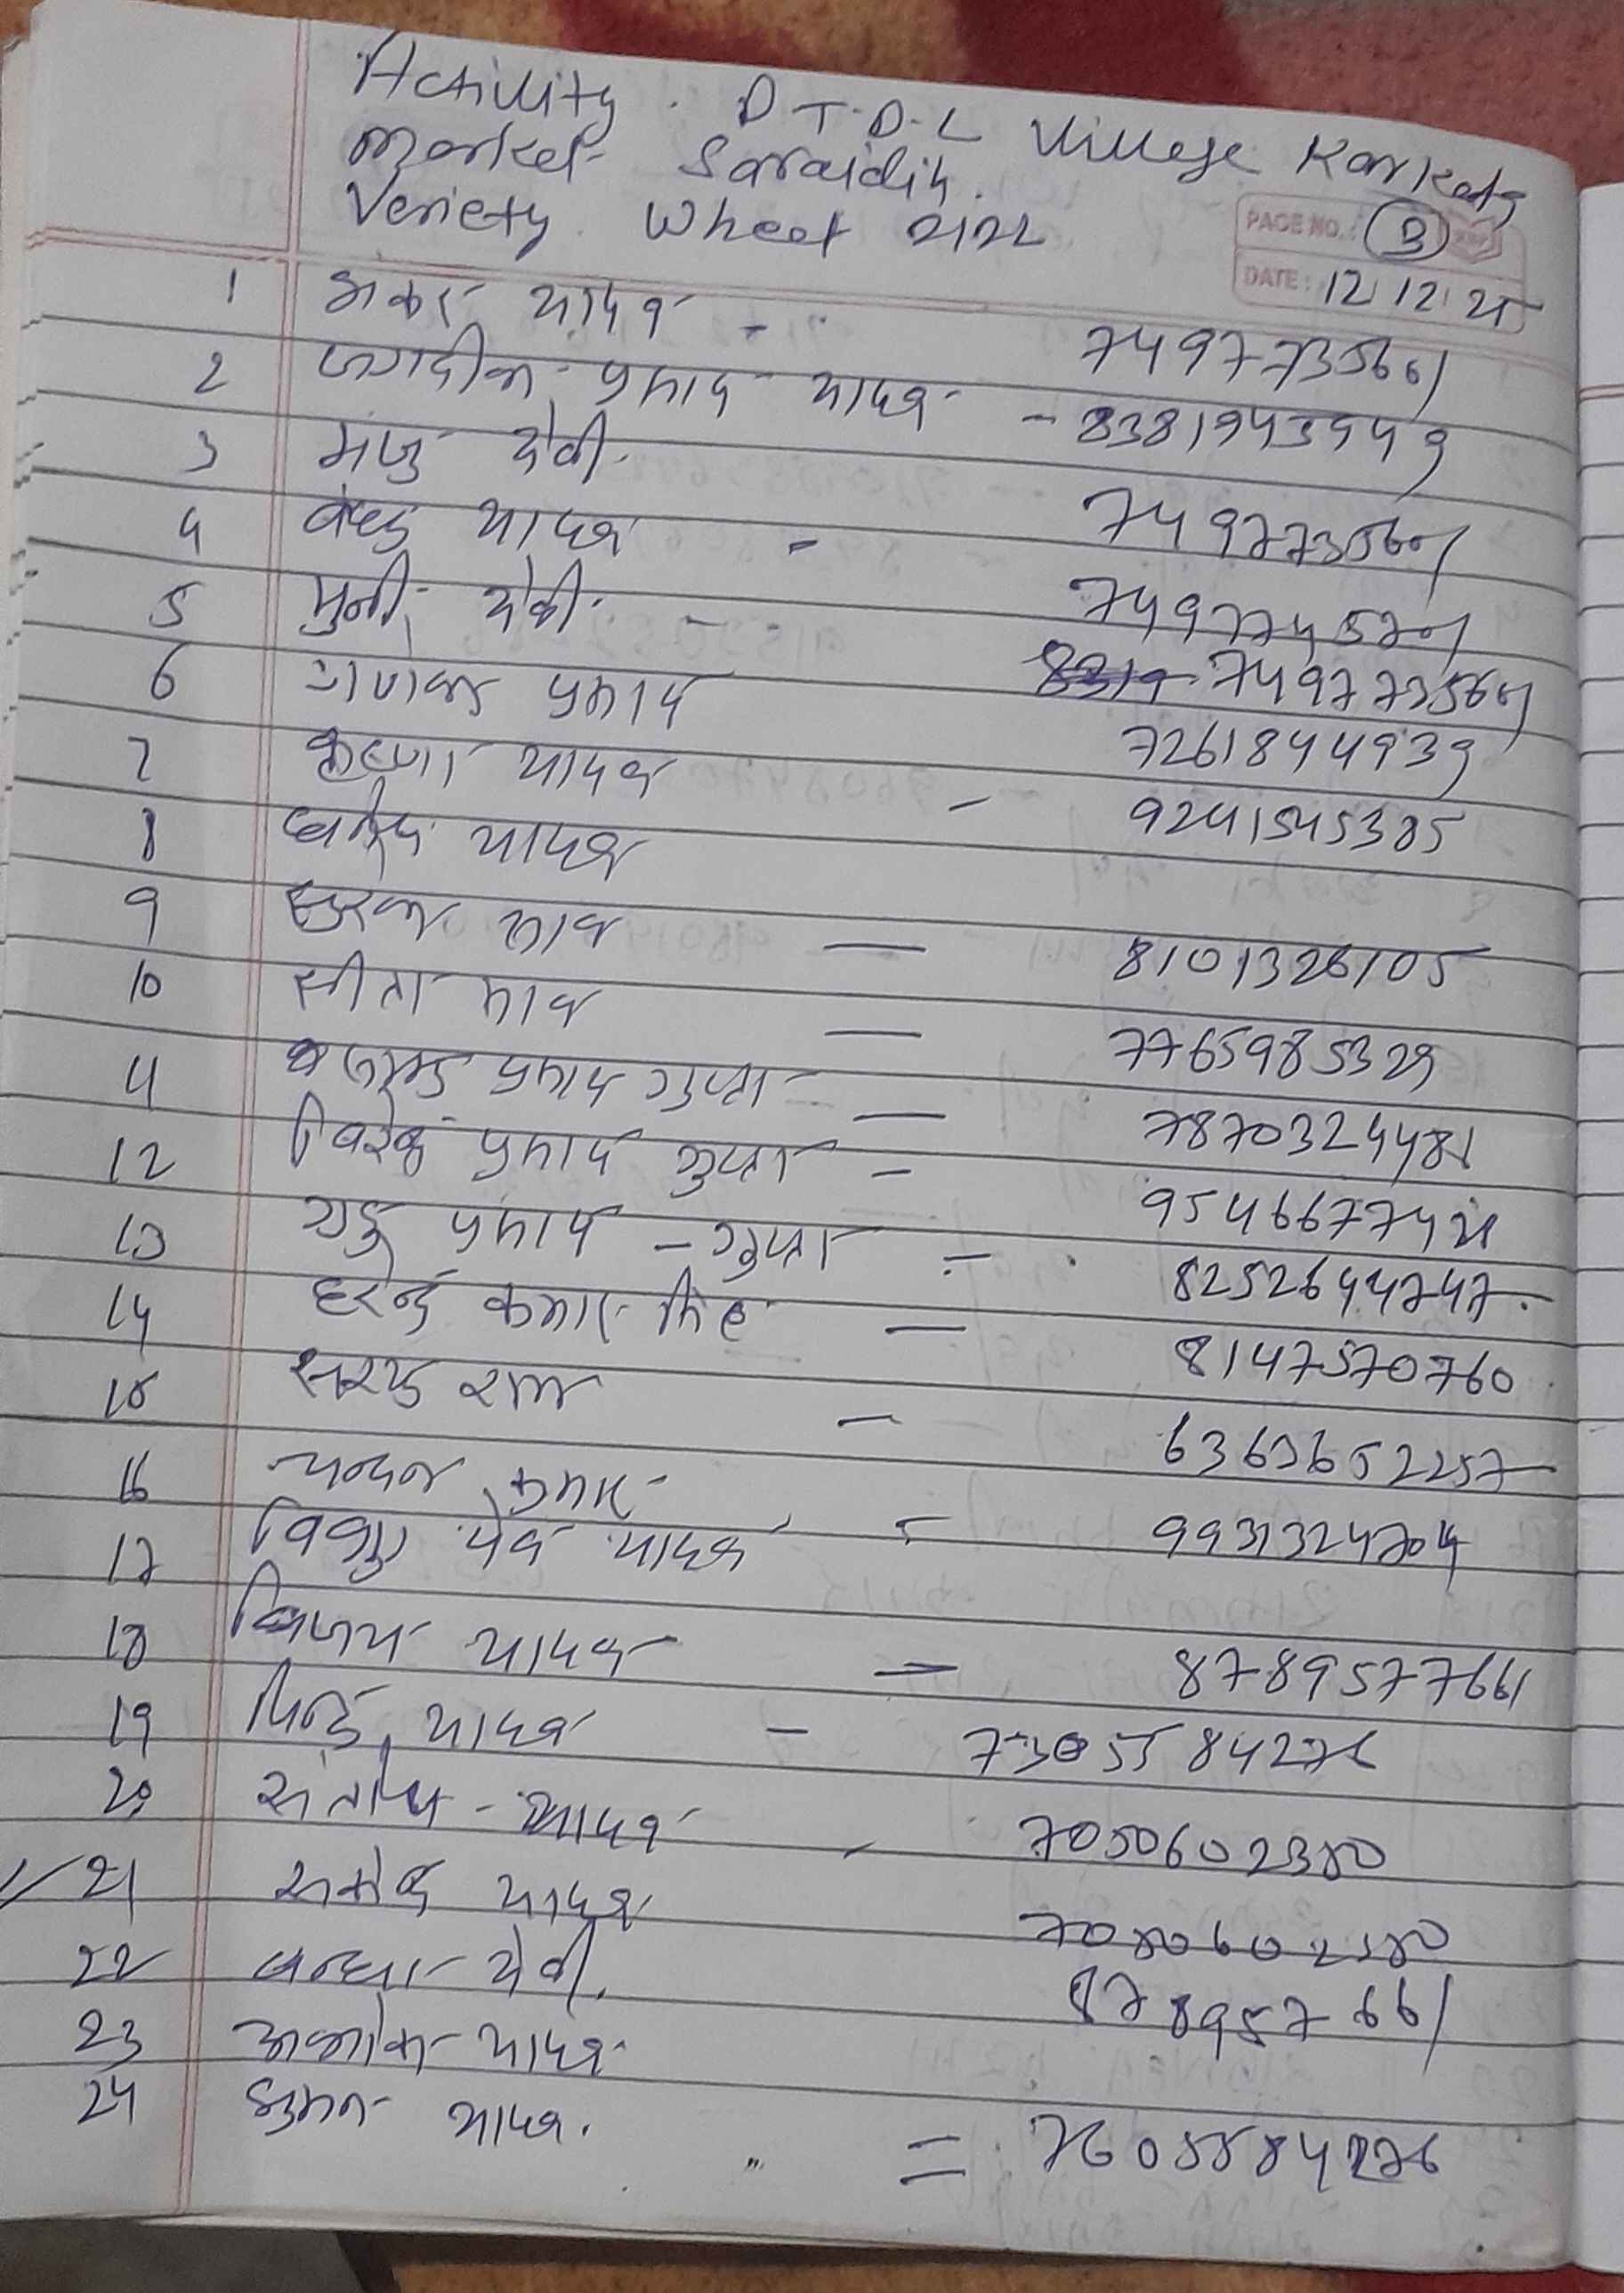 Activity. D T.D.L Village Karkata
Market Saraidih.
Veriety. Wheat 2122
PAGE NO.: 3
DATE: 12/12/25
1 शंकर यादव - 7497735661
2 जगदीश प्रसाद यादव - 8381943949
3 मंजु देवी. 7497735601
4 यादव - 7497745701
5 मुन्नी देवी. - 8319 7497735601
6 प्रसाद 7261844939
7 कृष्णा यादव - 9241545385
8 यादव
9 सूरज साव — 8101326105
10 सीता साव — 7765985329
11 प्रसाद गुप्ता — 7870324481
12 प्रसाद गुप्ता - 9546677421
13 प्रसाद - गुप्ता - 8252644747.
14 हरेन्द्र कुमार सिंह — 8147570760
15 सरजु राम - 6363652257
16 चन्दन कुमार
17 विष्णु देव यादव - 9931324704
18 विजय यादव — 8789577661
19 पिन्टु यादव - 7305584276
20 संतोष - यादव - 7050602380
21 यादव 7050602380
22 सन्ध्या देवी. 878957661
23 अशोक यादव
24 यादव. " = 7605584276